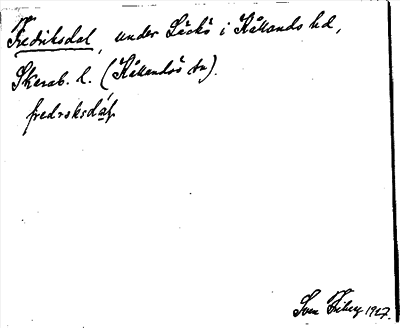 Fredriksdal, under Läckö i Kållands hd,
Skarab. l. (Kållandsö sn).
fredrəksdáļ
1927.